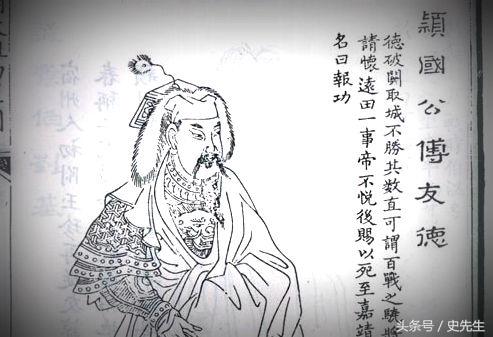 穎國公傅友德
德破關取城不勝其数直可謂百戰之驍將
請懷遠田一事帝不悦後賜以死至嘉靖
名曰報功
宿州人初附王珍
头条号 / 史先生